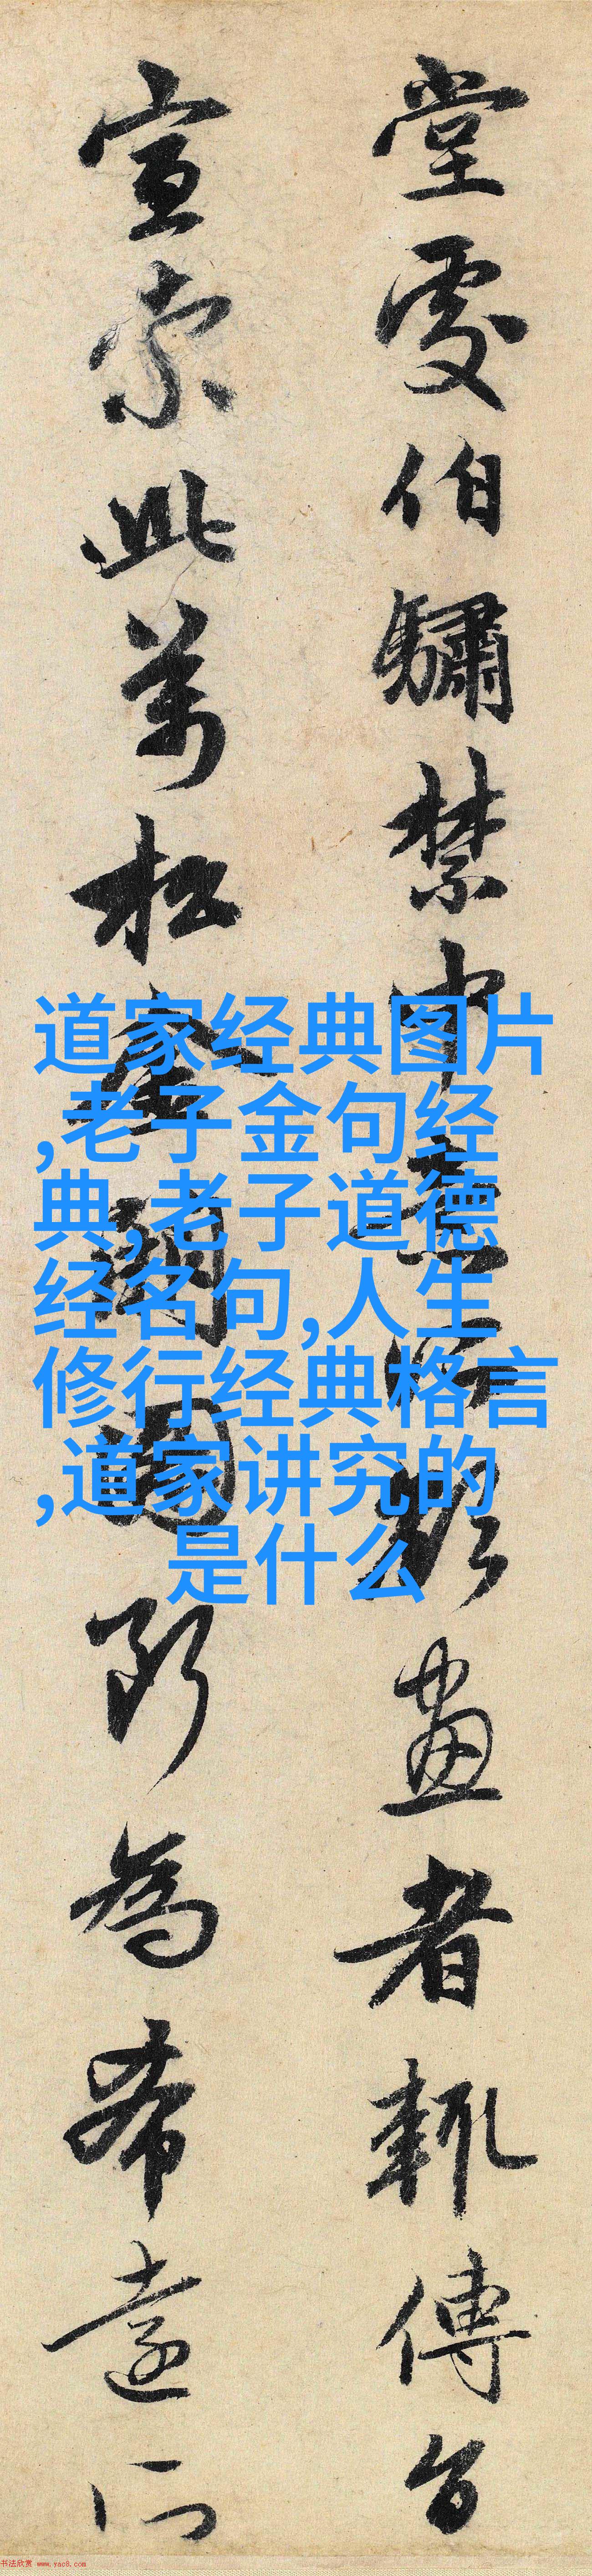 堂處伯驌禁中意所欲畫者輒傳旨
宣索此萬松金闕圖斷為希遠所
道家经典图片
,老子金句经
典,老子道德
经名句,人生
修行经典格言
,道家讲究的
是什么
书法欣赏 www.yac8.com